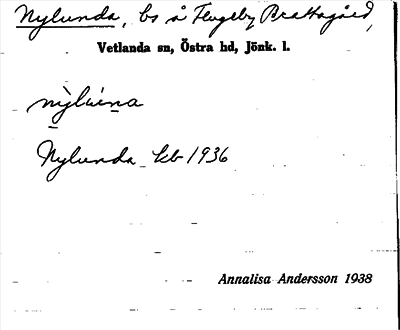 Nylunda, bs å Flugeby Brattagård,
Vetlanda sn, Östra hd, Jönk. l.
nỳlúna
Nylunda kb 1936
Annalisa Andersson 1938